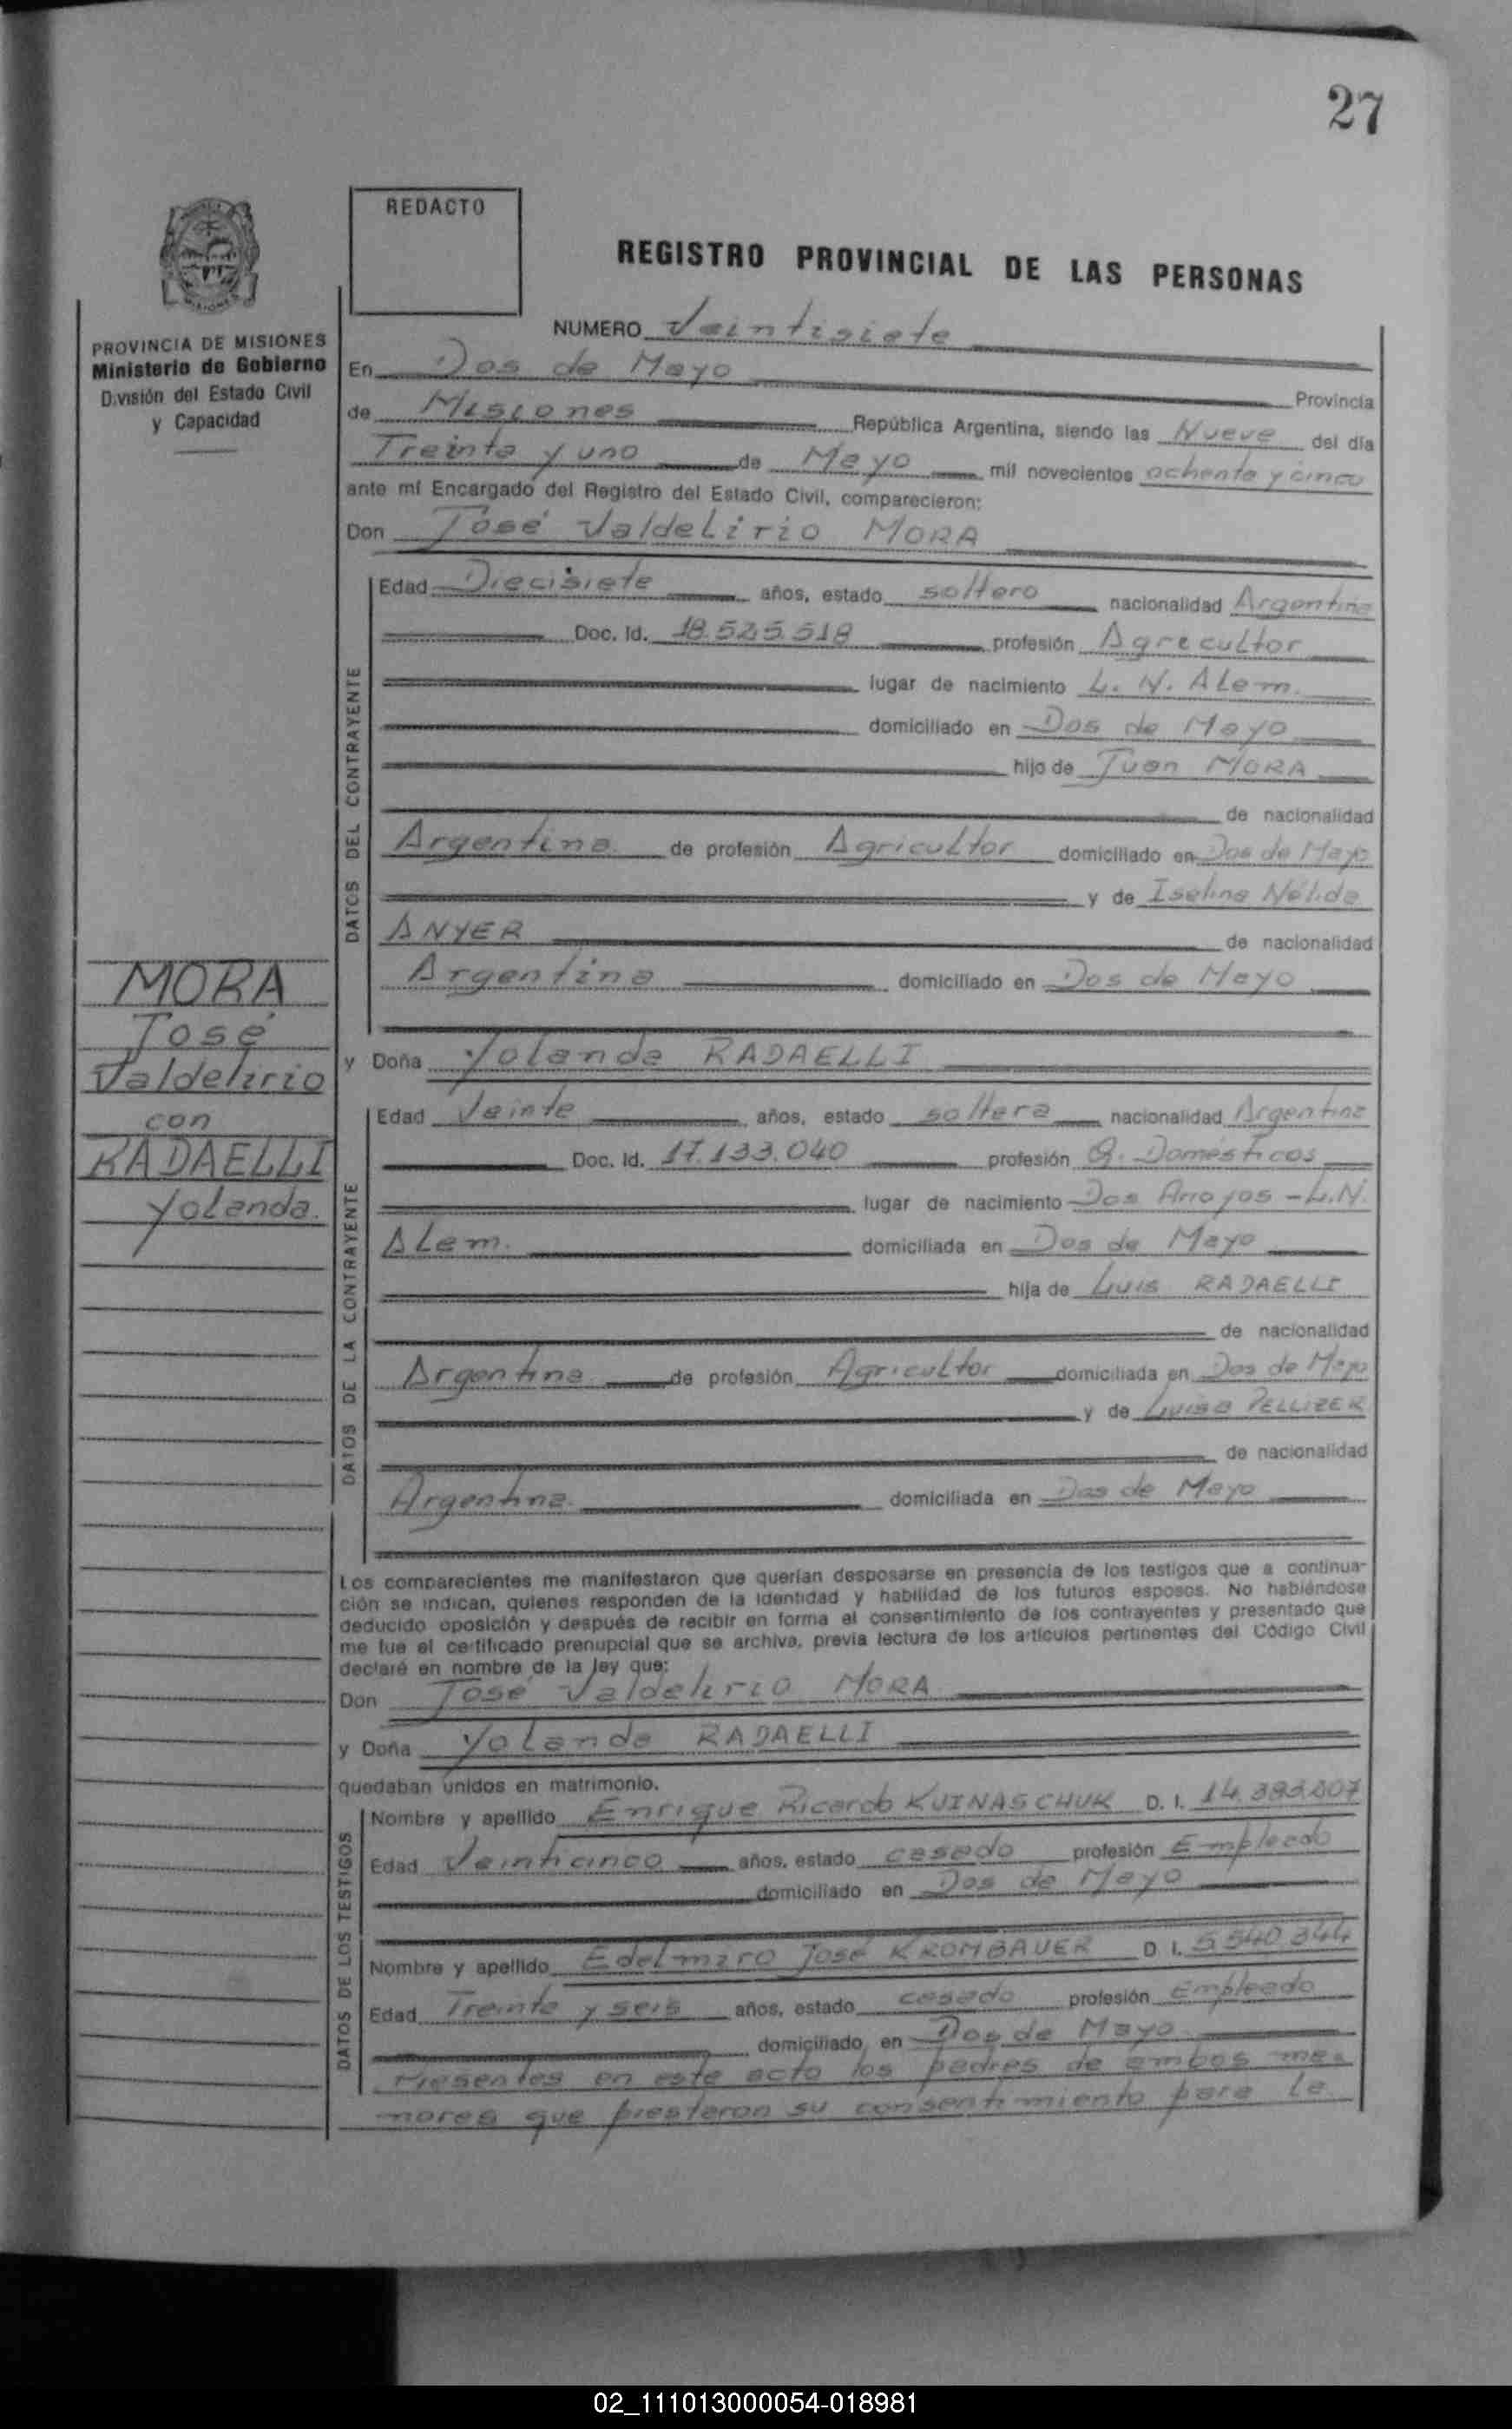 27
REDACTO
REGISTRO PROVINCIAL DE LAS PERSONAS
PROVINCIA DE MISIONES
Ministerio de Gobierno
División del Estado Civil
y Capacidad
NUMERO Veintisiete
En Dos de Mayo Provincia
de Misiones República Argentina, siendo las Nueve del día
Treinta y uno de Mayo mil novecientos ochenta y cinco
ante mí Encargado del Registro del Estado Civil, comparecieron:
Don José Valdelirio MORA
DATOS DEL CONTRAYENTE
Edad Diecisiete años, estado soltero nacionalidad Argentina
Doc. Id. 18.525.518 profesión Agrecultor
lugar de nacimiento L. N. ALem.
domiciliado en Dos de Mayo
hijo de Juan MORA
de nacionalidad
Argentina de profesión Agricultor domiciliado en Dos de Mayo
y de Iselina Nélida
ANYER de nacionalidad
Argentina domiciliado en Dos de Mayo
MORA
José
Valdelirio
con
RADAELLI
Yolanda.
y Doña Yolanda RADAELLI
DATOS DE LA CONTRAYENTE
Edad Veinte años, estado soltera nacionalidad Argentina
Doc. Id. 17.133.040 profesión Q. Domésticos
lugar de nacimiento Dos Arroyos - L.N.
ALem. domiciliada en Dos de Mayo
hija de Luis RADAELLI
de nacionalidad
Argentina de profesión Agricultor domiciliada en Dos de Mayo
y de Luisa PELLIZER
de nacionalidad
Argentina. domiciliada en Dos de Mayo
Los comparecientes me manifestaron que querían desposarse en presencia de los testigos que a continua-
ción se indican, quienes responden de la identidad y habilidad de los futuros esposos. No habiéndose
deducido oposición y después de recibir en forma el consentimiento de los contrayentes y presentado que
me fue el certificado prenupcial que se archiva, previa lectura de los artículos pertinentes del Código Civil
declaré en nombre de la ley que:
Don José Valdelirio MORA
y Doña Yolanda RADAELLI
quedaban unidos en matrimonio.
DATOS DE LOS TESTIGOS
Nombre y apellido Enrique Ricardo KUINASCHUK D. I.
Edad Veinticinco años, estado casado profesión Empleado
domiciliado en Dos de Mayo
Nombre y apellido Edelmiro José KROMBAUER D. I. 5.540.344
Edad Treinta y seis años, estado casado profesión Empleado
domiciliado en Dos de Mayo
Presentes en este acto los padres de ambos me-
nores que prestaron su consentimiento para la
02_111013000054-018981